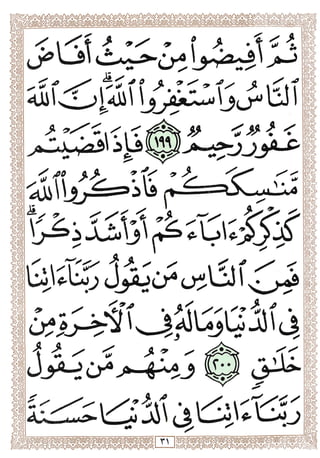 ثُمَّ أَفِيضُوا۟ مِنْ حَيْثُ أَفَاضَ
ٱلنَّاسُ وَٱسْتَغْفِرُوا۟ ٱللَّهَ ۚ إِنَّ ٱللَّهَ
غَفُورٌ رَّحِيمٌ ١٩٩ فَإِذَا قَضَيْتُم
مَّنَٰسِكَكُمْ فَٱذْكُرُوا۟ ٱللَّهَ
كَذِكْرِكُمْ ءَابَآءَكُمْ أَوْ أَشَدَّ ذِكْرًا ۗ
فَمِنَ ٱلنَّاسِ مَن يَقُولُ رَبَّنَآ ءَاتِنَا
فِى ٱلدُّنْيَا وَمَا لَهُۥ فِى ٱلْءَاخِرَةِ مِنْ
خَلَٰقٍ ٢٠٠ وَمِنْهُم مَّن يَقُولُ
رَبَّنَآ ءَاتِنَا فِى ٱلدُّنْيَا حَسَنَةً
٣١